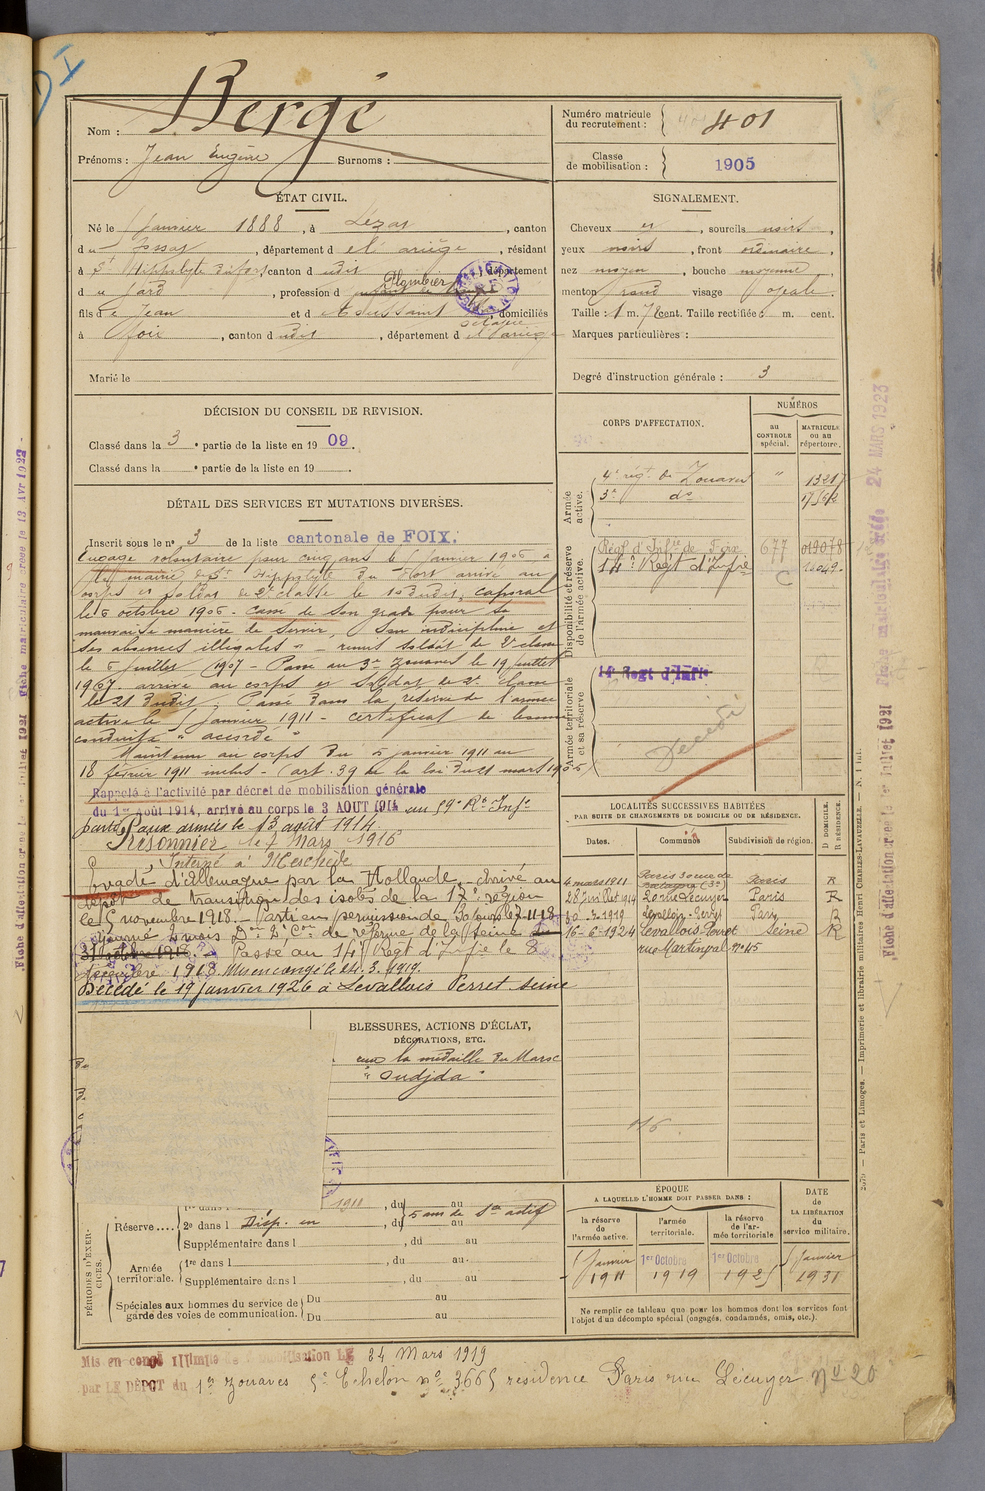 Nom : Bergé
Prénoms : Jean Eugène Surnoms :
Numéro matricule du recrutement : 401
Classe de mobilisation : 1905
ÉTAT CIVIL.
Né le janvier 1888, à Lézat, canton
du Fossat, département de l'Ariège, résidant
à St Hippolyte du Fort, canton dudit, département
du Gard, profession de Plombier
fils de Jean et de Toussaint, domiciliés
à Foix, canton dudit, département de l'Ariège
Marié le
SIGNALEMENT.
Cheveux et, sourcils noirs,
yeux noirs, front ordinaire,
nez moyen, bouche moyenne,
menton rond visage ovale.
Taille : 1 m. cent. Taille rectifiée : m. cent.
Marques particulières :
Degré d'instruction générale : 3
DÉCISION DU CONSEIL DE REVISION.
Classé dans la 3e partie de la liste en 1909.
Classé dans la e partie de la liste en 19 .
DÉTAIL DES SERVICES ET MUTATIONS DIVERSES.
Inscrit sous le no 3 de la liste cantonale de FOIX.
Engagé volontaire pour cinq ans le janvier 1906 à
la mairie de St Hippolyte du Fort arrivé au
corps et soldat de 2e classe le 10 dudit, caporal
le 6 octobre 1906 - Cassé de son grade pour sa
mauvaise manière de servir, son indiscipline et
ses absences illégales " - remis soldat de 2e classe
le 6 juillet 1907 - Passé au 3e zouaves le 19 juillet
1907. arrivé au corps et soldat de 2e classe
le 21 dudit, Passé dans la réserve de l'armée
active le janvier 1911 - certificat de bonne
conduite " accordé "
Maintenu au corps du 5 janvier 1911 au
18 février 1911 inclus - (art. 39 de la loi du 21 mars 1905)
Rappelé à l'activité par décret de mobilisation générale
du 1er Août 1914, arrivé au corps le 3 AOUT 1914 au 59e Rt Infie
parti aux armées le 13 août 1914.
Prisonnier le 7 Mars 1916
Interné à Meschede
Evadé d'Allemagne par la Hollande - Arrivé au
dépôt de transition des isolés de la 17e région
le 5 novembre 1918. - Parti en permission de 30 jours le 7-11-18
2 mois de réforme de la Seine
31 octobre 1918. - Passé au 14e Régt d'Infie le 8
décembre 1918. Mis en congé le 24.3.1919.
Décédé le 19 janvier 1926 à Levallois Perret Seine
CORPS D'AFFECTATION.
NUMÉROS
AU CONTROLE spécial.
MATRICULE OU AU répertoire.
Armée active.
4e régt de Zouaves " 13217
3e do
Disponibilité et réserve de l'armée active.
Régt d'Infie de Foix 677 019078
14e Régt d'Infie C
Armée territoriale et sa réserve
14e Regt d'Infie
Décédé
LOCALITÉS SUCCESSIVES HABITÉES
PAR SUITE DE CHANGEMENTS DE DOMICILE OU DE RÉSIDENCE.
Dates. Communes Subdivision de région. D DOMICILE. R RÉSIDENCE.
4 mars 1911 Paris 3 rue de Paris R
28 juillet 1914 20 rue Lécuyer Paris R
1919 Levallois-Perret Paris R
16-6-1924 Levallois-Perret Seine R
rue Martinval no 45
BLESSURES, ACTIONS D'ÉCLAT,
DÉCORATIONS, ETC.
la médaille du Maroc
" Oudjda "
116
PÉRIODES D'EXERCICES.
1re dans l 1911, du au
Réserve.... 2e dans l Disp. en, du 5 ans de Sce actif au
Supplémentaire dans l , du au
Armée territoriale. 1re dans l , du au
Supplémentaire dans l , du au
Spéciales aux hommes du service de garde des voies de communication. Du au
Du au
ÉPOQUE
A LAQUELLE L'HOMME DOIT PASSER DANS :
la réserve de l'armée active.
l'armée territoriale.
la réserve de l'armée territoriale
DATE de LA LIBÉRATION du service militaire.
janvier 1911
1er Octobre 1919
1er Octobre 1925
janvier 1931
Ne remplir ce tableau que pour les hommes dont les services font
l'objet d'un décompte spécial (engagés, condamnés, omis, etc.).
Mis en congé illimité de démobilisation LE 24 Mars 1919
par LE DÉPOT du 1er zouaves 5e Echelon no 3665 résidence Paris rue Lécuyer No 20
Paris et Limoges. — Imprimerie et librairie militaires Henri CHARLES-LAVAUZELLE
Fiche matriculaire 24 MARS 1923
Fiche d'affectation créée le 1er Juillet 1921